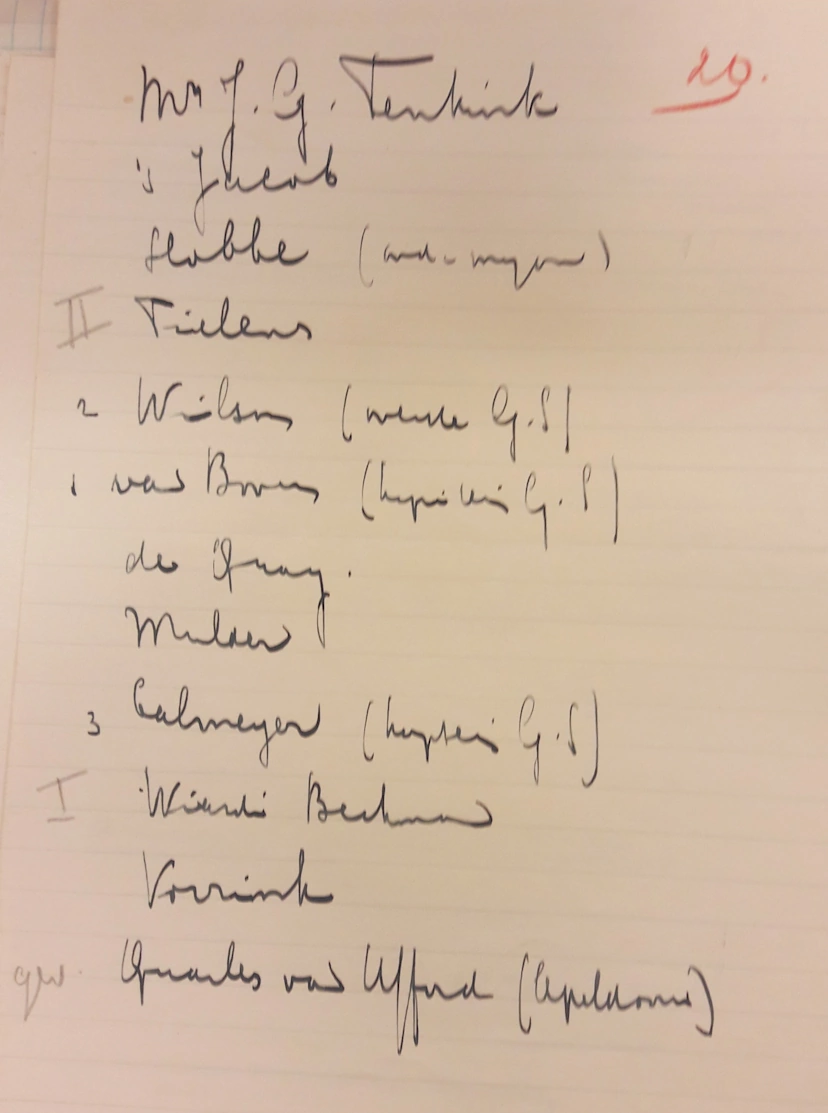 20.
Mr J. G. Tenkink
's Jacob
Slobbe (oud-
II Tielens
2 Wilson (  G.S)
1 van Boven (kapitein G.S)
de Quay.
Mulder
3 Calmeyer (kapitein G.S)
I Wiardi Beckman
Vorrink
gew. Quarles van Ufford (Apeldoorn)